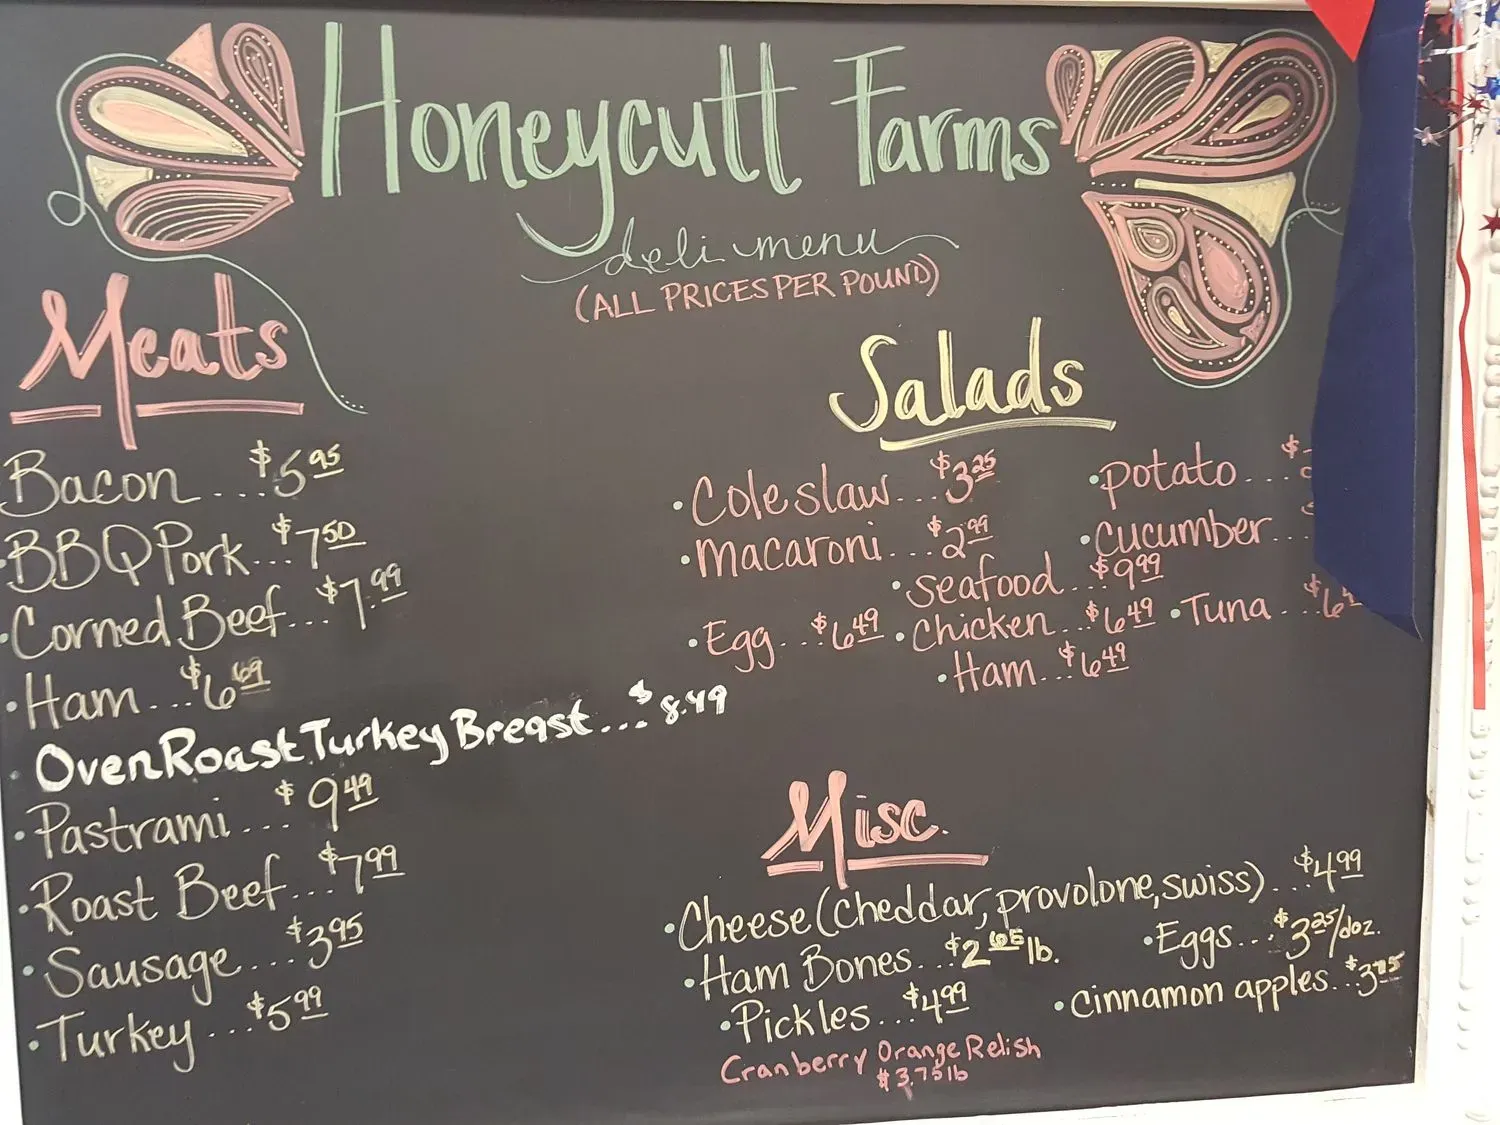 Honeycutt Farms
deli menu
(ALL PRICES PER POUND)
Meats
Bacon...$5.95
•BBQ Pork...$7.50
•Corned Beef...$7.99
•Ham...$6.69
•Oven Roast Turkey Breast...$8.49
•Pastrami...$9.49
•Roast Beef...$7.99
•Sausage...$3.95
•Turkey...$5.99
Salads
•Coleslaw...$3.25 •potato...$
•macaroni...$2.99 •cucumber...
•seafood...$9.99
•Egg...$6.49 •Chicken...$6.49 •Tuna...$6.4
•Ham...$6.49
Misc.
•Cheese (cheddar, provolone, swiss)...$4.99
•Ham Bones...$2.65 lb. •Eggs...$3.25/doz.
•Pickles...$4.99 •cinnamon apples...$3.75
Cranberry Orange Relish
$3.75 lb